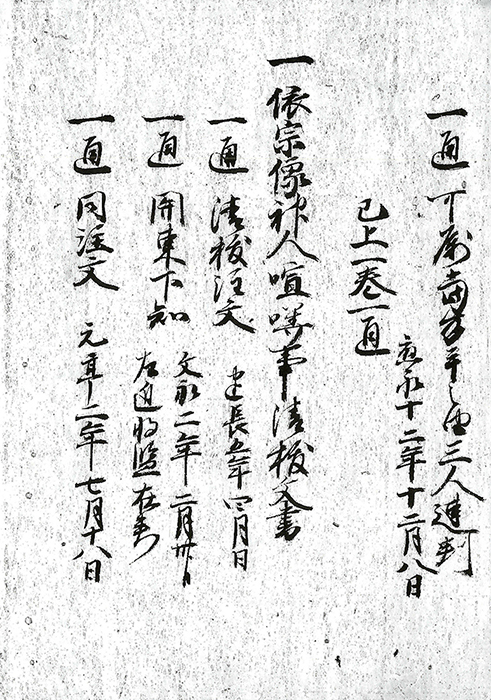 一通 可属當方手之由三人連判
應永十二年十二月八日
已上一巻一通
一 依宗像神人喧嘩事清祓文書
一通 清祓注文 建長五年四月日
一通 関東下知 文永二年二月
左近将監在判
一通 同注文 元亨二年七月十八日